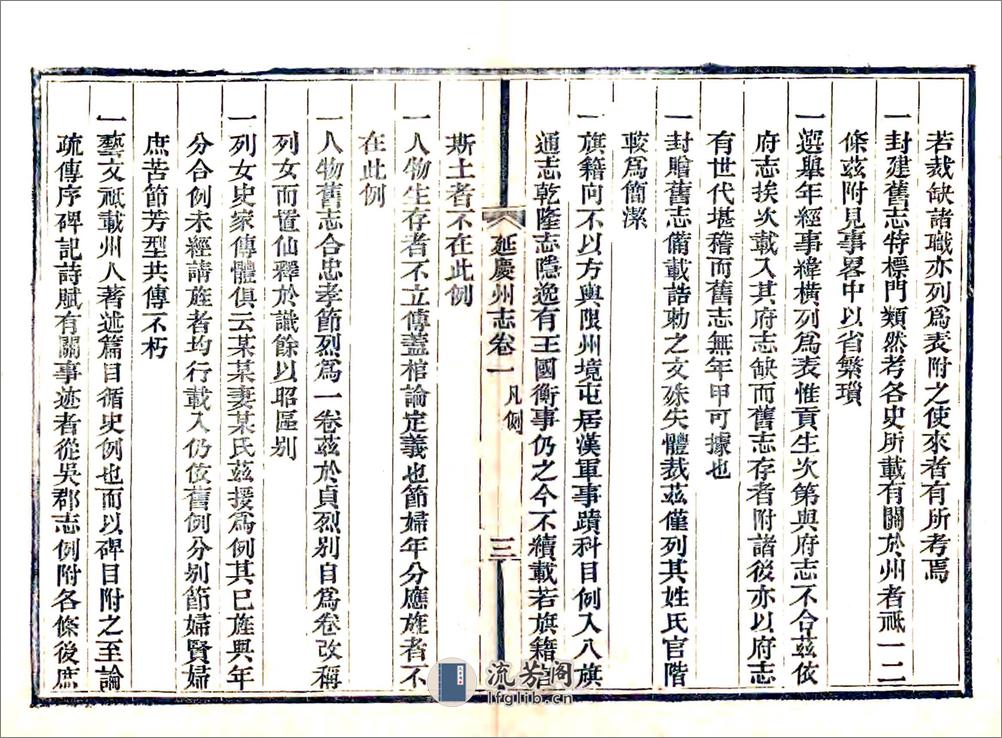 若裁缺諸職亦列爲表附之使來者有所考焉
一封建舊志特標門類然考各史所載有關於州者祇一二
條茲附見事畧中以省繁瑣
一選舉年經事緯橫列爲表惟貢生次第與府志不合茲依
府志挨次載入其府志缺而舊志存者附諸後亦以府志
有世代堪稽而舊志無年甲可據也
一封贈舊志備載誥勅之文殊失體裁茲僅列其姓氏官階
較爲簡潔
一旗籍向不以方輿限州境屯居漢軍事蹟科目例入八旗
通志乾隆志隱逸有王國衡事仍之今不續載若旗籍官
延慶州志卷一
凡例
三
斯土者不在此例
一人物生存者不立傳蓋棺論定義也節婦年分應旌者不
在此例
一人物舊志合忠孝節烈爲一卷茲於貞烈别自爲卷改稱
列女而置仙釋於識餘以昭區别
一列女史家傳體俱云某某妻某氏茲援爲例其已旌與年
分合例未經請旌者均行載入仍依舊例分别節婦賢婦
庶苦節芳型共傳不朽
一藝文祇載州人著述篇目循史例也而以碑目附之至論
疏傳序碑記詩賦有關事迹者從吳郡志例附各條後庶
流芳阁
lfglib.cn